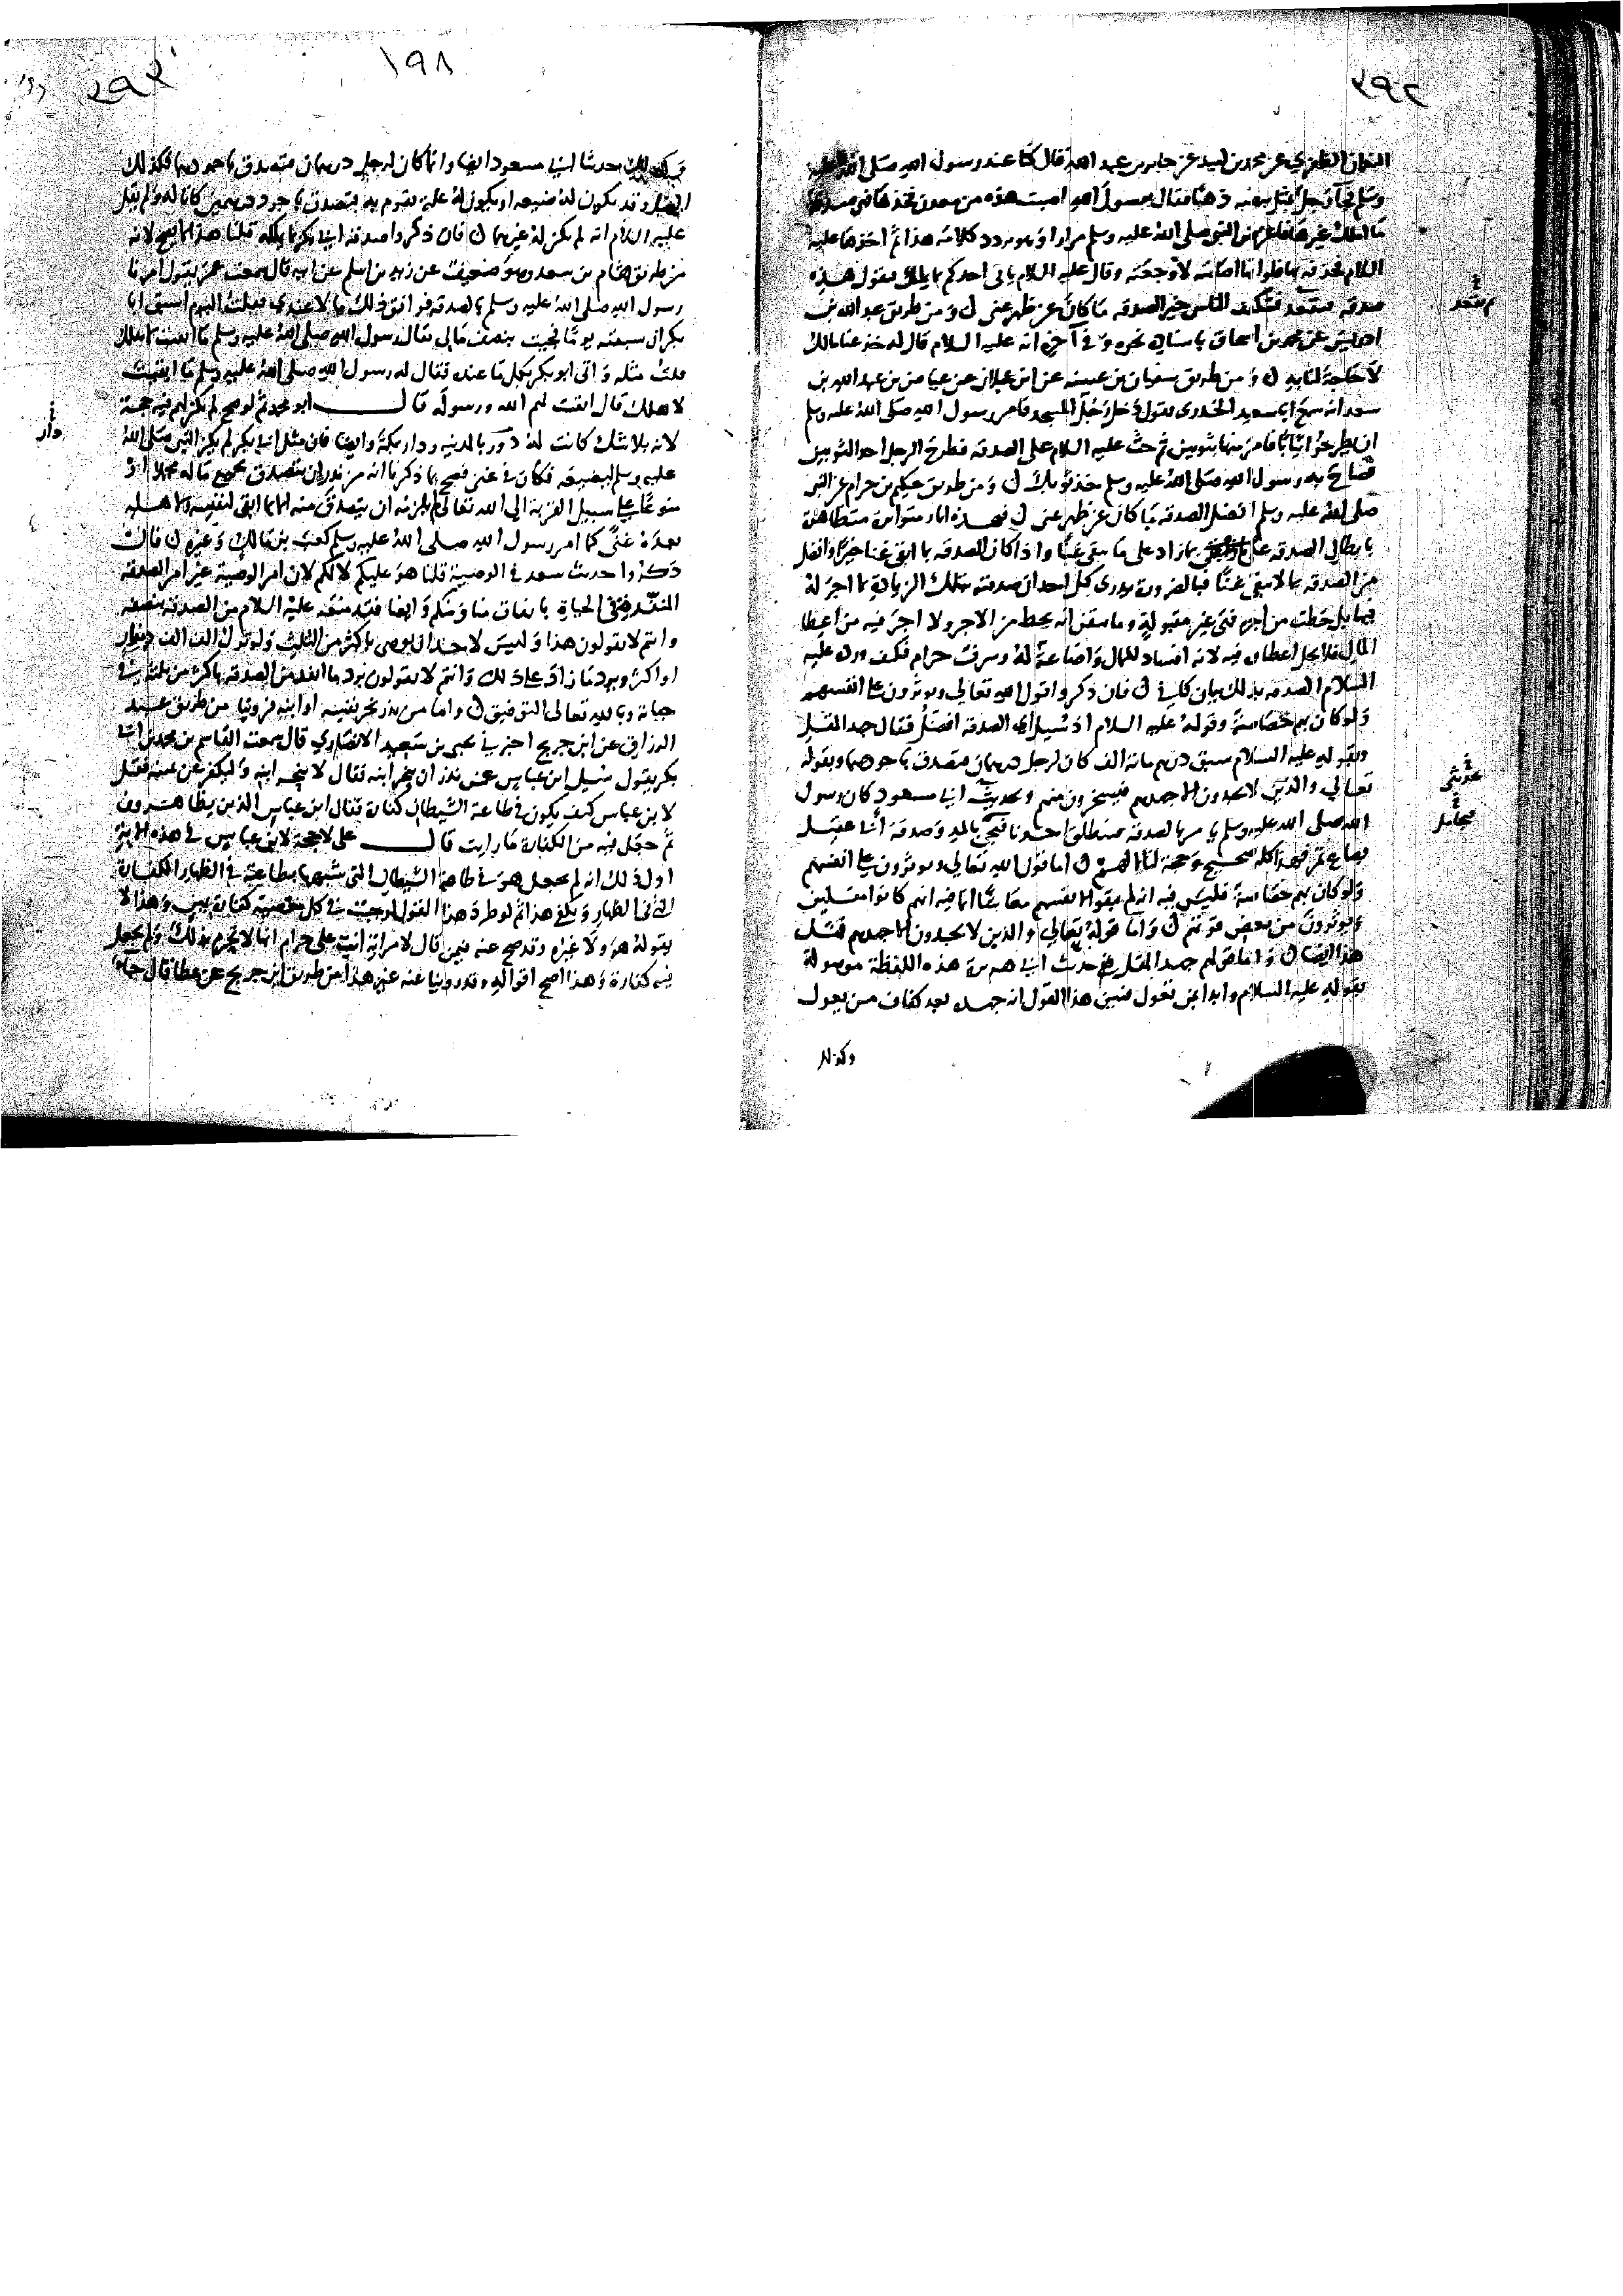 ٢٩٢
النعمان الظفري عن محمود بن لبيد عن جابر بن عبد الله قال كنا عند رسول الله صلى الله عليه
وسلم فجاء رجل بمثل بيضة ذهبا فقال يرسول الله اصبت هذه من معدن فخذها فهي صدقة
ما املك غيرها فاعرض النبي صلى الله عليه وسلم مرارا وهو يردد كلامه هذا ثم اخذها عليه
السلام فحذفه بها فلو انها اصابته لاوجعته وقال عليه السلام ياتي احدكم بما يملك فيقول هذه
صدقة فيقعد يتكفف الناس خير الصدقة ما كان عن ظهر غنى ومن طريق عبد الله بن
ادريس عن محمد بن اسحاق باسناده نحوه وفي آخره انه عليه السلام قال له خذ عنا مالك
لا حاجة لنا به ومن طريق سفيان بن عيينة عن ابن عجلان عن عياض بن عبد الله بن
سعد انه سمع ابا سعيد الخدري يقول دخل رجل المسجد فامر رسول الله صلى الله عليه وسلم
ان يطرحوا ثيابا فامر منها بثوبين ثم حث عليه السلام على الصدقة فطرح الرجل احد الثوبين
فصاح به رسول الله صلى الله عليه وسلم خذ ثوبك ومن طريق حكيم بن حزام عن النبي
صلى الله عليه وسلم افضل الصدقة ما كان عن ظهر غنى فهذه اثار متواترة متظاهرة
بابطال الصدقة بما زاد على ما يبقي غنا واذا كان الصدقة بما ابقى غنا خيرا وافضل
من الصدقة بما لا يبقي غنا فبالضرورة يدري كل احد ان صدقته بتلك الزيادة لا اجر له
فيها بل حطت من اجره فهي غير مقبولة وما تيقن انه يحط من الاجر ولا اجر فيه من اعطا
المال فلا يحل اعطاوه فيه لانه افساد للمال واضاعة له وسرف حرام فكيف ورده عليه
السلام الصدقة بذلك بيان كافي فان ذكروا قول الله تعالى ويوثرون على انفسهم
ولو كان بهم خصاصة وقوله عليه السلام اذ سيل اي الصدقة افضل فقال جهد المقل
وبقوله عليه السلام سبق درهم مائة الف كان لرجل درهمان فتصدق باجودهما وبقوله
تعالى والذين لا يجدون الا جهدهم فيسخرون منهم وبحديث ابي مسعود كان رسول
الله صلى الله عليه وسلم يامرنا بالصدقة فينطلق احدنا فيجي بالمد وصدقة ابي عقيل
بصاع تمر فهذا كله صحيح وحجة لنا اما قول الله تعالى ويوثرون على انفسهم
ولو كان بهم خصاصة فليس فيه انه لم يبقوا لانفسهم معاشا انما فيه انهم كانوا مقلين
ويوثرون من بعض قوتهم واما قوله تعالى والذين لا يجدون الا جهدهم فمثل
هذا ايضا واما قولهم جهد المقل ففي حديث ابي هريرة هذه اللفظة موصولة
بقوله عليه السلام وابدا بمن تعول فتبين هذا القول انه جهده بعد كفاف من يعول
وكذلك
١٩٨
٢٩٣
حديث ابي مسعود ايضا وانما كان لرجل درهمان فتصدق باجودهما فكذلك
ايضا وقد يكون له ضيعة او يكون له غلة تقوم به فتصدق باجود درهمين كانا له ولم يقل
عليه السلام انه لم يكن له غيرهما فان ذكروا صدقة ابي بكر بما يملك قلنا هذا لا يصح لانه
من طريق هشام بن سعد وهو ضعيف عن زيد بن اسلم عن ابيه قال سمعت عمر يقول امرنا
رسول الله صلى الله عليه وسلم بالصدقة فوافق ذلك مالا عندي فقلت اليوم اسبق ابا
بكر ان سبقته يوما فجيت بنصف مالي فقال رسول الله صلى الله عليه وسلم ما ابقيت لاهلك
قلت مثله واتى ابو بكر بكل ما عنده فقال له رسول الله صلى الله عليه وسلم ما ابقيت
لاهلك قال ابقيت لهم الله ورسوله قال ابو محمد ثم لو صح لم يكن لهم فيه حجة
لانه بلا شك كانت له دور بالمدينة ودار بمكة وايضا فان مثل ابي بكر لم يكن النبي صلى الله
عليه وسلم ليضيعه فكان في غنى فصح بما ذكرنا انه من نذر ان يتصدق بجميع ماله مجملا او
منوعا على سبيل القربة الى الله تعالى لم يلزمه ان يتصدق منه الا بما ابقى لنفسه ولاهله
بعده غنى كما امر رسول الله صلى الله عليه وسلم كعب بن مالك وغيره فان
ذكروا حديث سعد في الوصية قلنا هو عليكم لا لكم لان امر الوصية غير امر الصدقة
المنفذة في الحياة باتفاق منا ومنكم وايضا فقد منعه عليه السلام من الصدقة بنصفه
وانتم لا تقولون هذا وليس لاحد ان يوصي باكثر من الثلث ولو ترك الف الف دينار
او اكثر ويرد ما زاد على ذلك وانتم لا تقولون برد ما انفذ من الصدقة باكثر من ثلثه في
حياته وبالله تعالى التوفيق واما من نذر نحر نفسه او ابنه فروينا من طريق عبد
الرزاق عن ابن جريج اخبرني يحيى بن سعيد الانصاري قال سمعت القاسم بن محمد بن ابي
بكر يقول سيل ابن عباس عمن نذر ان ينحر ابنه فقال لا ينحر ابنه وليكفر عن يمينه فقيل
لابن عباس كيف يكون في طاعة الشيطان كفارة فقال ابن عباس الذين يظاهرون
ثم جعل فيه من الكفارة ما رايت قال علي لا حجة لابن عباس في هذه الاية
اول ذلك انه لم يجعل هو في طاعة الشيطان التي شبهها بطاعته في الظهار الكفارة
التي في الظهار ويكفي هذا ثم لو طرد هذا القول لوجبت في كل معصية كفارة يمين وهذا لا
يقوله هو ولا غيره وقد صح عنه فيمن قال لامراته انت علي حرام انها لا تحرم بذلك ولم يجعل
فيه كفارة وهذا اصح اقواله وقد روينا عنه غير هذا من طريق ابن جريج عن عطا قال جاء